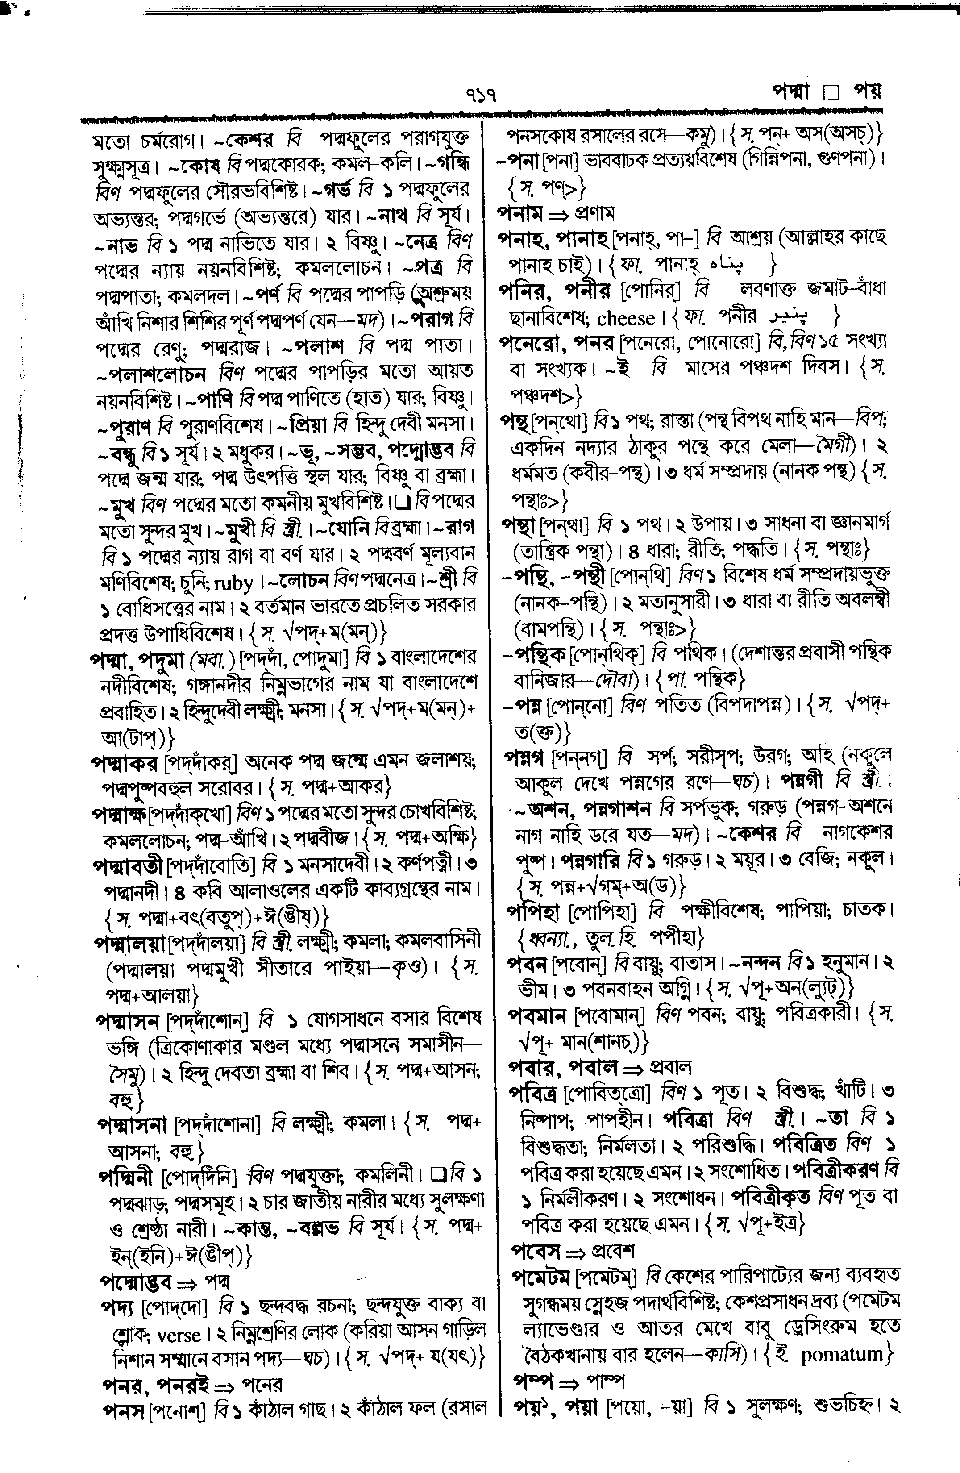 ৭১৭
পদ্মা □ পয়
মতো চর্মরোগ। ~কেশর বি পদ্মফুলের পরাগযুক্ত
সুক্ষ্মসূত্র। ~কোষ বি পদ্মকোরক; কমল-কলি। ~গন্ধি
বিণ পদ্মফুলের সৌরভবিশিষ্ট। ~গর্ভ বি ১ পদ্মফুলের
অভ্যন্তর; পদ্মগর্ভে (অভ্যন্তরে) যার। ~নাথ বি সূর্য।
~নাভ বি ১ পদ্ম নাভিতে যার। ২ বিষ্ণু। ~নেত্র বিণ
পদ্মের ন্যায় নয়নবিশিষ্ট; কমললোচন। ~পত্র বি
পদ্মপাতা; কমলদল। ~পর্ণ বি পদ্মের পাপড়ি (অশ্রুময়
আঁখি নিশার শিশির পূর্ণ পদ্মপর্ণ (যেন—মদ)। ~পরাগ বি
পদ্মের রেণু; পদ্মরাজ। ~পলাশ বি পদ্ম পাতা।
~পলাশলোচন বিণ পদ্মের পাপড়ির মতো আয়ত
নয়নবিশিষ্ট। ~পাণি বি পদ্ম পাণিতে (হাত) যার; বিষ্ণু।
~পুরাণ বি পুরাণবিশেষ। ~প্রিয়া বি হিন্দু দেবী মনসা।
~বন্ধু বি ১ সূর্য। ২ মধুকর। ~ভূ, ~সম্ভব, পদ্মোদ্ভব বি
পদ্মে জন্ম যার; পদ্ম উৎপত্তি স্থল যার; বিষ্ণু বা ব্রহ্মা।
~মুখ বিণ পদ্মের মতো কমনীয় মুখবিশিষ্ট। □ বি পদ্মের
মতো সুন্দর মুখ। ~মুখী বি স্ত্রী.। ~যোনি বি ব্রহ্মা। ~রাগ
বি ১ পদ্মের ন্যায় রাগ বা বর্ণ যার। ২ পদ্মবর্ণ মূল্যবান
মণিবিশেষ; চুনি; ruby। ~লোচন বিণ পদ্মনেত্র। ~শ্রী বি
১ বোধিসত্ত্বের নাম। ২ বর্তমান ভারতে প্রচলিত সরকার
প্রদত্ত উপাধিবিশেষ। {স. √পদ্+ম(মন্)}
পদ্মা, পদুমা (মবা.) [পদ্‌দাঁ, পোদুমা] বি ১ বাংলাদেশের
নদীবিশেষ; গঙ্গানদীর নিম্নভাগের নাম যা বাংলাদেশে
প্রবাহিত। ২ হিন্দুদেবী লক্ষ্মী; মনসা। {স. √পদ্+ম(মন্)+
আ(টাপ্)}
পদ্মাকর [পদ্‌দাঁকর] অনেক পদ্ম জন্মে এমন জলাশয়;
পদ্মপুষ্পবহুল সরোবর। {স. পদ্ম+আকর}
পদ্মাক্ষ [পদ্‌দাঁক্‌খো] বিণ ১ পদ্মের মতো সুন্দর চোখবিশিষ্ট;
কমললোচন; পদ্ম-আঁখি। ২ পদ্মবীজ। {স. পদ্ম+অক্ষি}
পদ্মাবতী [পদ্‌দাঁবোতি] বি ১ মনসাদেবী। ২ কর্ণপত্নী। ৩
পদ্মানদী। ৪ কবি আলাওলের একটি কাব্যগ্রন্থের নাম।
{স. পদ্মা+বৎ(বতুপ্)+ঈ(ঙীষ্)}
পদ্মালয়া [পদ্‌দাঁলয়া] বি স্ত্রী. লক্ষ্মী; কমলা; কমলবাসিনী
(পদ্মালয়া পদ্মমুখী সীতারে পাইয়া—কৃও)। {স.
পদ্ম+আলয়া}
পদ্মাসন [পদ্‌দাঁশোন] বি ১ যোগসাধনে বসার বিশেষ
ভঙ্গি (ত্রিকোণাকার মণ্ডল মধ্যে পদ্মাসনে সমাসীন—
সৈমু)। ২ হিন্দু দেবতা ব্রহ্মা বা শিব। {স. পদ্ম+আসন;
বহু}
পদ্মাসনা [পদ্‌দাঁশোনা] বি লক্ষ্মী; কমলা। {স. পদ্ম+
আসনা; বহু}
পদ্মিনী [পোদ্‌দিঁনি] বিণ পদ্মযুক্তা; কমলিনী। □ বি ১
পদ্মঝাড়; পদ্মসমূহ। ২ চার জাতীয় নারীর মধ্যে সুলক্ষণা
ও শ্রেষ্ঠা নারী। ~কান্ত, ~বল্লভ বি সূর্য। {স. পদ্ম+
ইন্(ইনি)+ঈ(ঙীপ্)}
পদ্মোদ্ভব ⇒ পদ্ম
পদ্য [পোদ্‌দো] বি ১ ছন্দবদ্ধ রচনা; ছন্দযুক্ত বাক্য বা
শ্লোক; verse। ২ নিম্নশ্রেণির লোক (করিয়া আসন গাড়িল
নিশান সম্মানে বসান পদ্য—ঘচ)। {স. √পদ্+ য(যৎ)}
পনর, পনরই ⇒ পনের
পনস [পনোশ্] বি ১ কাঁঠাল গাছ। ২ কাঁঠাল ফল (রসাল
পনসকোষ রসালের রসে—কমু)। {স. পন্+ অস(অসচ্)}
-পনা [পনা] ভাববাচক প্রত্যয়বিশেষ (গিন্নিপনা, গুণপনা)।
{স. পণ্>}
পনাম ⇒ প্রণাম
পনাহ, পানাহ [পনাহ্, পা-] বি আশ্রয় (আল্লাহর কাছে
পানাহ চাই)। {ফা. পানাহ্ پناه }
পনির, পনীর [পোনির্] বি লবণাক্ত জমাট-বাঁধা
ছানাবিশেষ; cheese। {ফা. পনীর پنیر }
পনেরো, পনর [পনেরো, পোনোরো] বি, বিণ ১৫ সংখ্যা
বা সংখ্যক। ~ই বি মাসের পঞ্চদশ দিবস। {স.
পঞ্চদশ>}
পন্থ [পন্‌থো] বি ১ পথ; রাস্তা (পন্থ বিপথ নাহি মান—বিপ;
একদিন নদ্যার ঠাকুর পন্থে করে মেলা—মৈগী)। ২
ধর্মমত (কবীর-পন্থ)। ৩ ধর্ম সম্প্রদায় (নানক পন্থ) {স.
পন্থাঃ>}
পন্থা [পন্‌থা] বি ১ পথ। ২ উপায়। ৩ সাধনা বা জ্ঞানমার্গ
(তান্ত্রিক পন্থা)। ৪ ধারা; রীতি; পদ্ধতি। {স. পন্থাঃ}
-পন্থি, -পন্থী [পোন্‌থি] বিণ ১ বিশেষ ধর্ম সম্প্রদায়ভুক্ত
(নানক-পন্থি)। ২ মতানুসারী। ৩ ধারা বা রীতি অবলম্বী
(বামপন্থি)। {স. পন্থাঃ>}
-পন্থিক [পোন্‌থিক্] বি পথিক। (দেশান্তর প্রবাসী পন্থিক
বানিজার—দৌবা)। {পা. পন্থিক}
-পন্ন [পোন্‌নো] বিণ পতিত (বিপদাপন্ন)। {স. √পদ্+
ত(ক্ত)}
পন্নগ [পন্‌নগ্] বি সর্প; সরীসৃপ; উরগ; অহি (নকুলে
আকুল দেখে পন্নগের রণে—ঘচ)। পন্নগী বি স্ত্রী.
~অশন, পন্নগাশন বি সর্পভুক; গরুড় (পন্নগ-অশনে
নাগ নাহি ডরে যত—মদ)। ~কেশর বি নাগকেশর
পুষ্প। পন্নগারি বি ১ গরুড়। ২ ময়ূর। ৩ বেজি; নকুল।
{স. পন্ন+√গম্+অ(ড)}
পপিহা [পোপিহা] বি পক্ষীবিশেষ; পাপিয়া; চাতক।
{ধ্বন্যা., তুল. হি. পপীহা}
পবন [পবোন্] বি বায়ু; বাতাস। ~নন্দন বি ১ হনুমান। ২
ভীম। ৩ পবনবাহন অগ্নি। {স. √পূ+অন(ল্যুট্)}
পবমান [পবোমান্] বিণ পবন; বায়ু; পবিত্রকারী। {স.
√পূ+ মান(শানচ্)}
পবার, পবাল ⇒ প্রবাল
পবিত্র [পোবিত্‌ত্রো] বিণ ১ পূত। ২ বিশুদ্ধ; খাঁটি। ৩
নিষ্পাপ; পাপহীন। পবিত্রা বিণ স্ত্রী.। ~তা বি ১
বিশুদ্ধতা; নির্মলতা। ২ পরিশুদ্ধি। পবিত্রিত বিণ ১
পবিত্র করা হয়েছে এমন। ২ সংশোধিত। পবিত্রীকরণ বি
১ নির্মলীকরণ। ২ সংশোধন। পবিত্রীকৃত বিণ পূত বা
পবিত্র করা হয়েছে এমন। {স. √পূ+ইত্র}
পবেস ⇒ প্রবেশ
পমেটম [পমেটম্] বি কেশের পারিপাট্যের জন্য ব্যবহৃত
সুগন্ধময় স্নেহজ পদার্থবিশিষ্ট; কেশপ্রসাধন দ্রব্য (পমেটম
ল্যাভেণ্ডার ও আতর মেখে বাবু ড্রেসিংরুম হতে
বৈঠকখানায় বার হলেন—কাসি)। {ই. pomatum}
পম্প ⇒ পাম্প
পয়১, পয়া [পয়ো, -য়া] বি ১ সুলক্ষণ; শুভচিহ্ন। ২